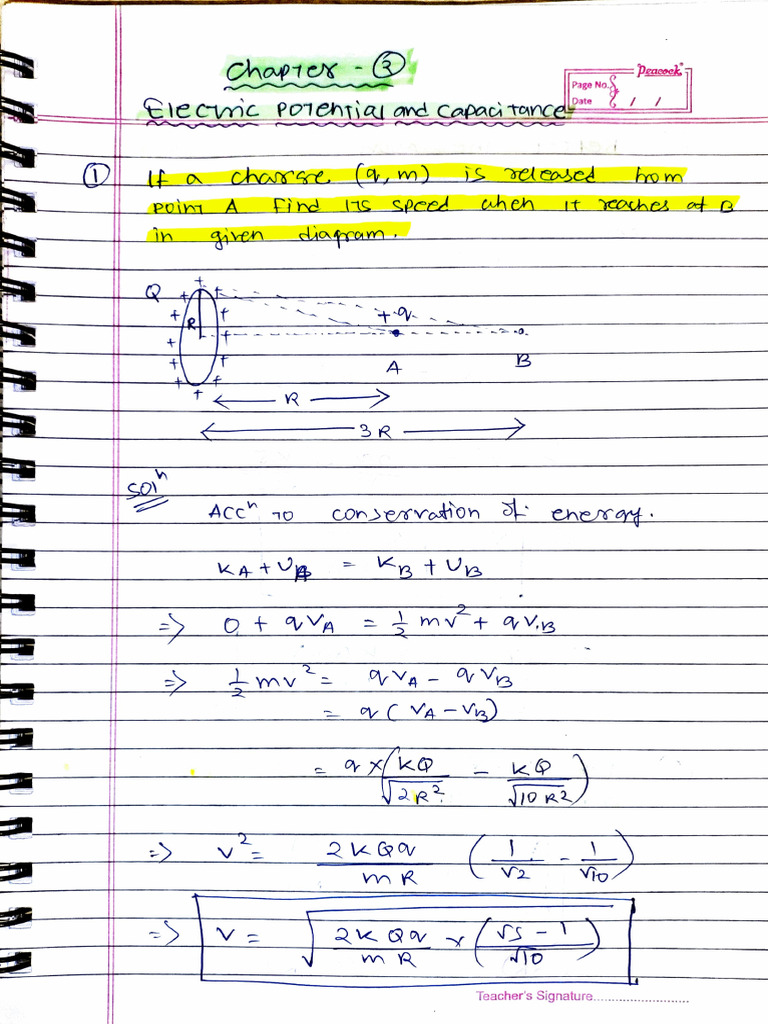 Chapter - ③
Peacock
Page No.
Date / /
Electric Potential and Capacitance
① If a charge (q, m) is released from
point A find its speed when it reaches at B
in given diagram.
Q + + + + + + + + + + + +
R
+q
A B
R
3R
Solⁿ
Accⁿ to conservation of energy.
K_A + U_A = K_B + U_B
=> 0 + qV_A = 1/2 mv² + qV_B
=> 1/2 mv² = qV_A - qV_B
= q(V_A - V_B)
= q × (kQ/√2R² - kQ/√10R²)
=> v² = 2kQq/mR (1/√2 - 1/√10)
=> v = √(2kQq/mR × (√5 - 1/√10))
Teacher's Signature........................